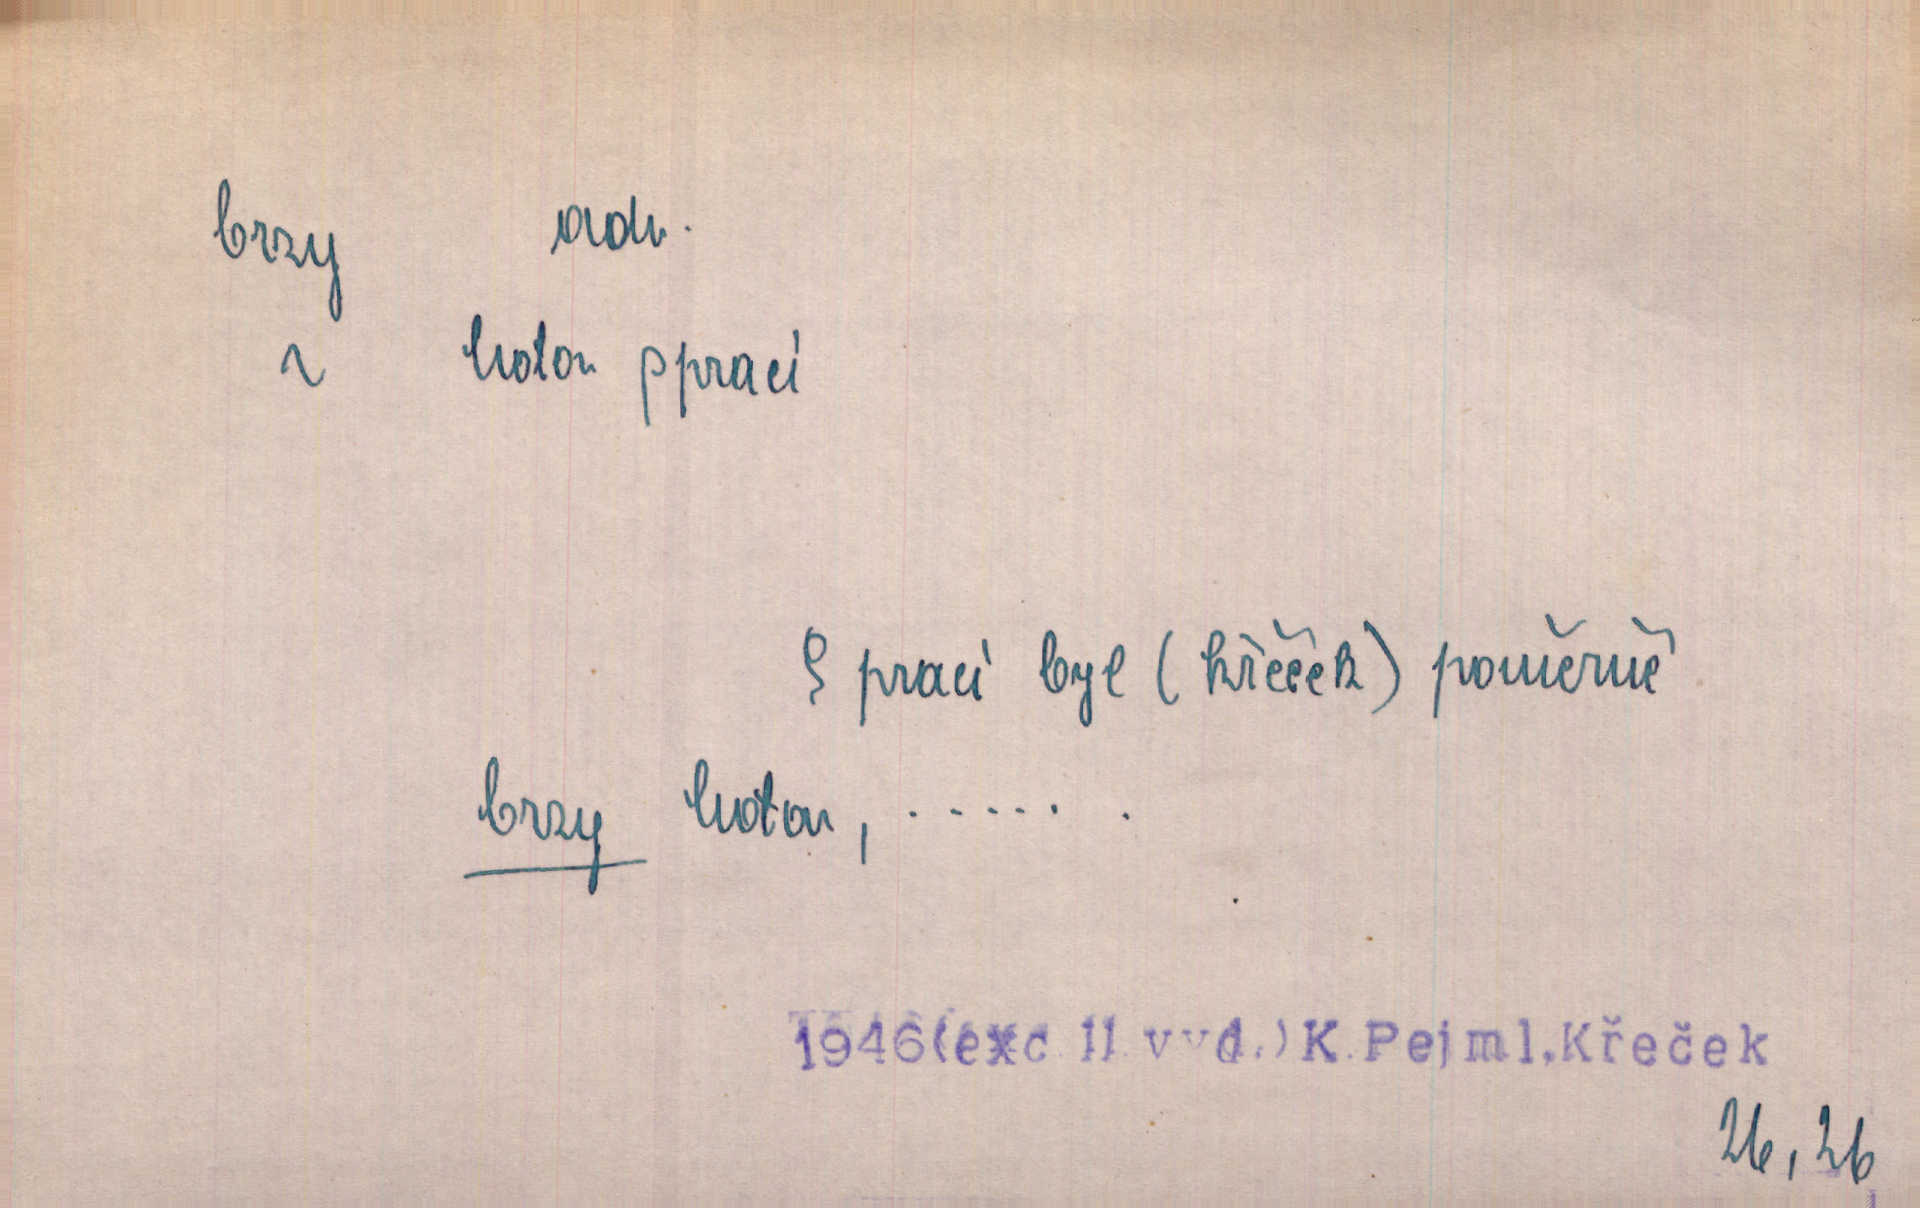 brzy adv.
~ hotov s prací
S prací byl (křeček) poměrně
brzy hotov, ...... .
1946(exc. II. vyd.) K. Pejml, Křeček
26, 26